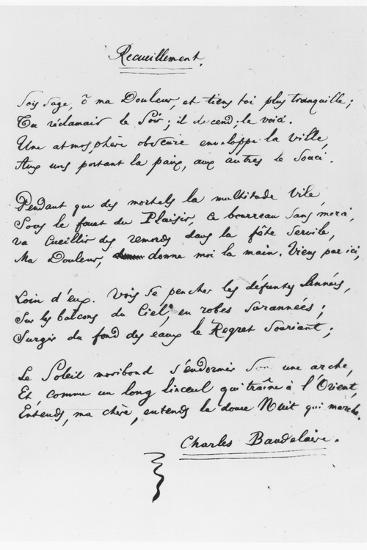 Recueillement.
Sois sage, ô ma Douleur, et tiens toi plus tranquille;
Tu réclamais le Soir; il descend; le voici.
Une atmosphère obscure enveloppe la ville,
Aux uns portant la paix, aux autres le souci.
Pendant que des mortels la multitude vile,
Sous le fouet du Plaisir, ce bourreau sans merci,
va cueillir des remords dans la fête servile,
Ma Douleur, donne moi la main. Viens par ici,
Loin d'eux. Vois se pencher les défuntes Années,
Sur les balcons du Ciel, en robes surannées;
Surgir du fond des eaux le Regret souriant;
Le Soleil moribond s'endormir sous une arche,
Et comme un long linceul qui traîne à l'Orient,
Entends, ma chère, entends la douce Nuit qui marche.
Charles Baudelaire.